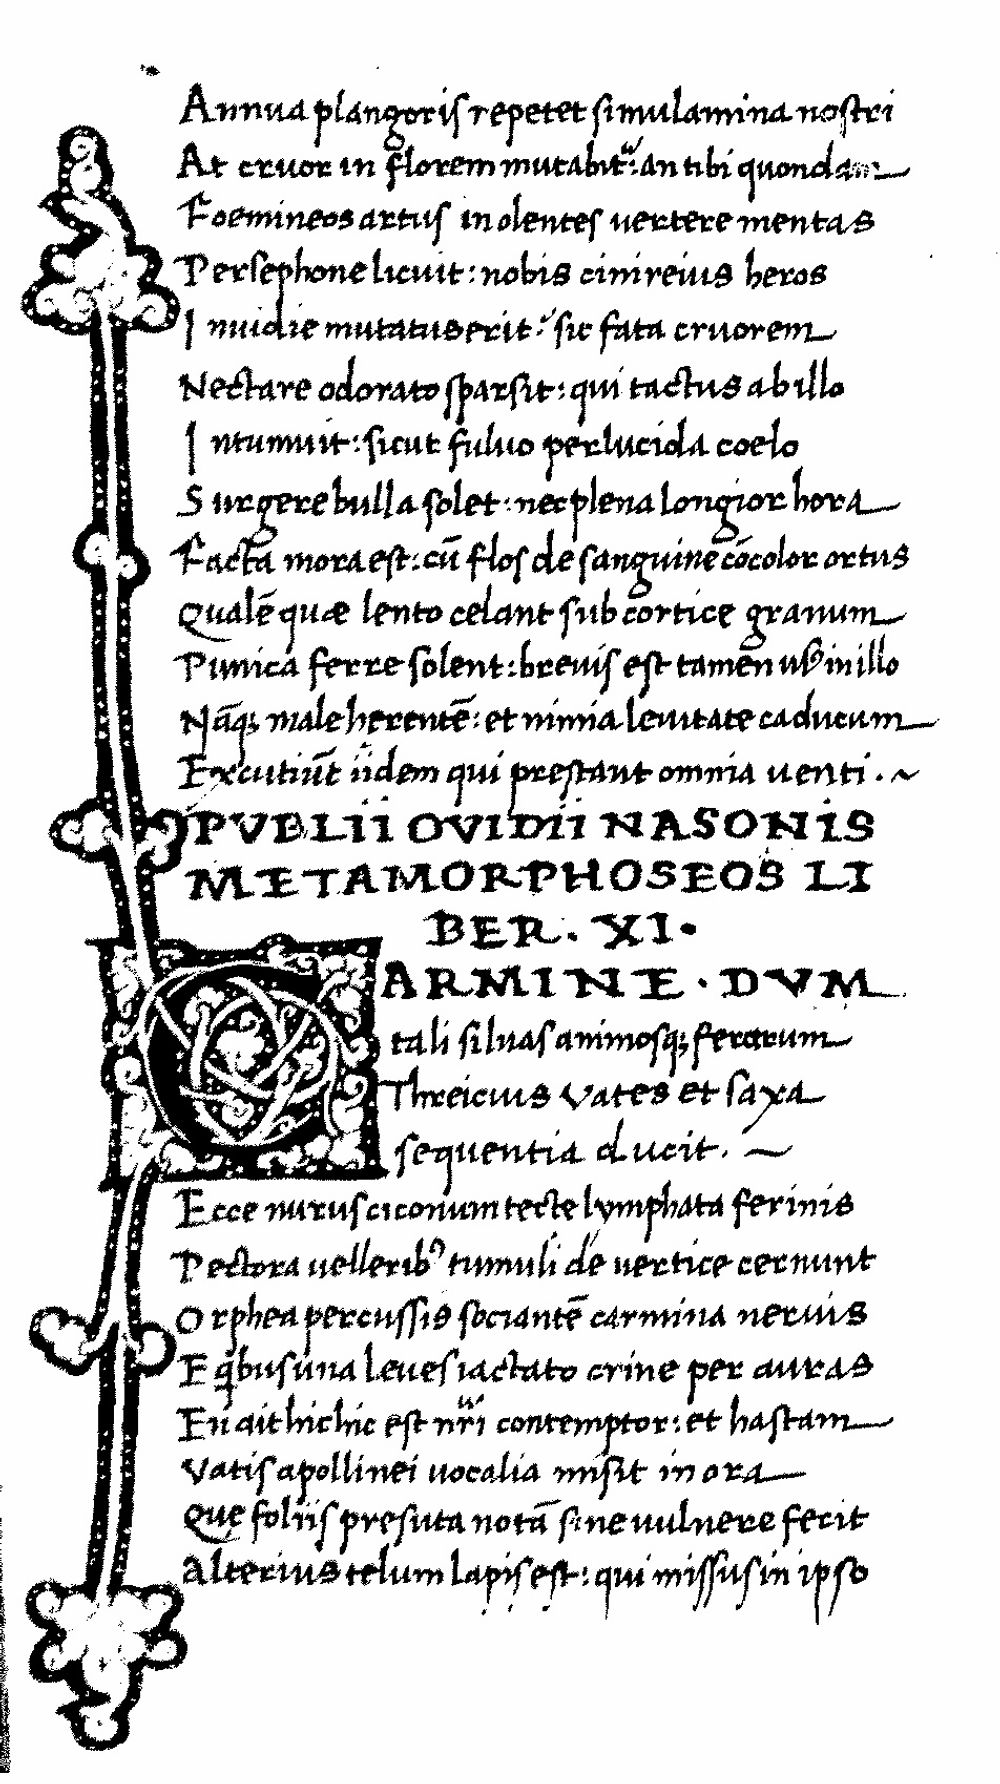 Annua plangoris repetet simulamina nostri
At cruor in florem mutabit᷑: an tibi quondam
Foemineos artus in olentes vertere mentas
Persephone licuit: nobis cinireius heros
Inuidie mutatus erit: sic fata cruorem
Nectare odorato sparsit: qui tactus ab illo
Intumuit: sicut fuluo perlucida coelo
Surgere bulla solet: nec plena longior hora
Facta mora est: cū flos de sanguine cōcolor ortus
Qualē quæ lento celant sub cortice granum
Punica ferre solent: breuis est tamen usꝰ in illo
Nāq; male herentē: et nimia leuitate caducum
Excutiūt iidem qui prestant omnia venti . ~
PVBLII OVIDII NASONIS
METAMORPHOSEOS LI
BER. XI.
CARMINE . DVM
tali siluas animosq; ferarum
Threicius Vates et saxa
sequentia ducit. ~
Ecce nurus ciconum tecte lymphata ferinis
Pectora velleribꝰ tumuli de vertice cernunt
Orphea percussis sociantē carmina neruis
E qͥbus una leues iactato crine per auras
En ait hic hic est nr̄i contemptor: et hastam
Vatis apollinei vocalia misit in ora
Que foliis presuta notā sine uulnere fecit
Alterius telum lapis est: qui missus in ipso